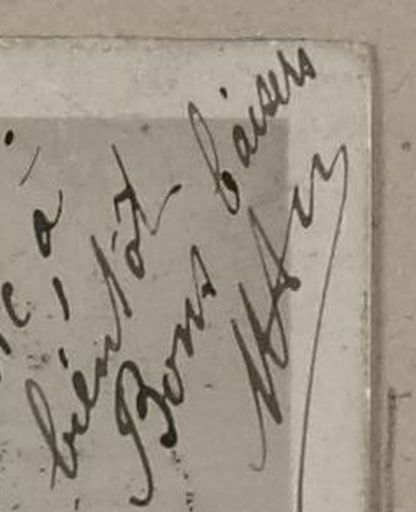 c, à
bientôt
Bons baisers